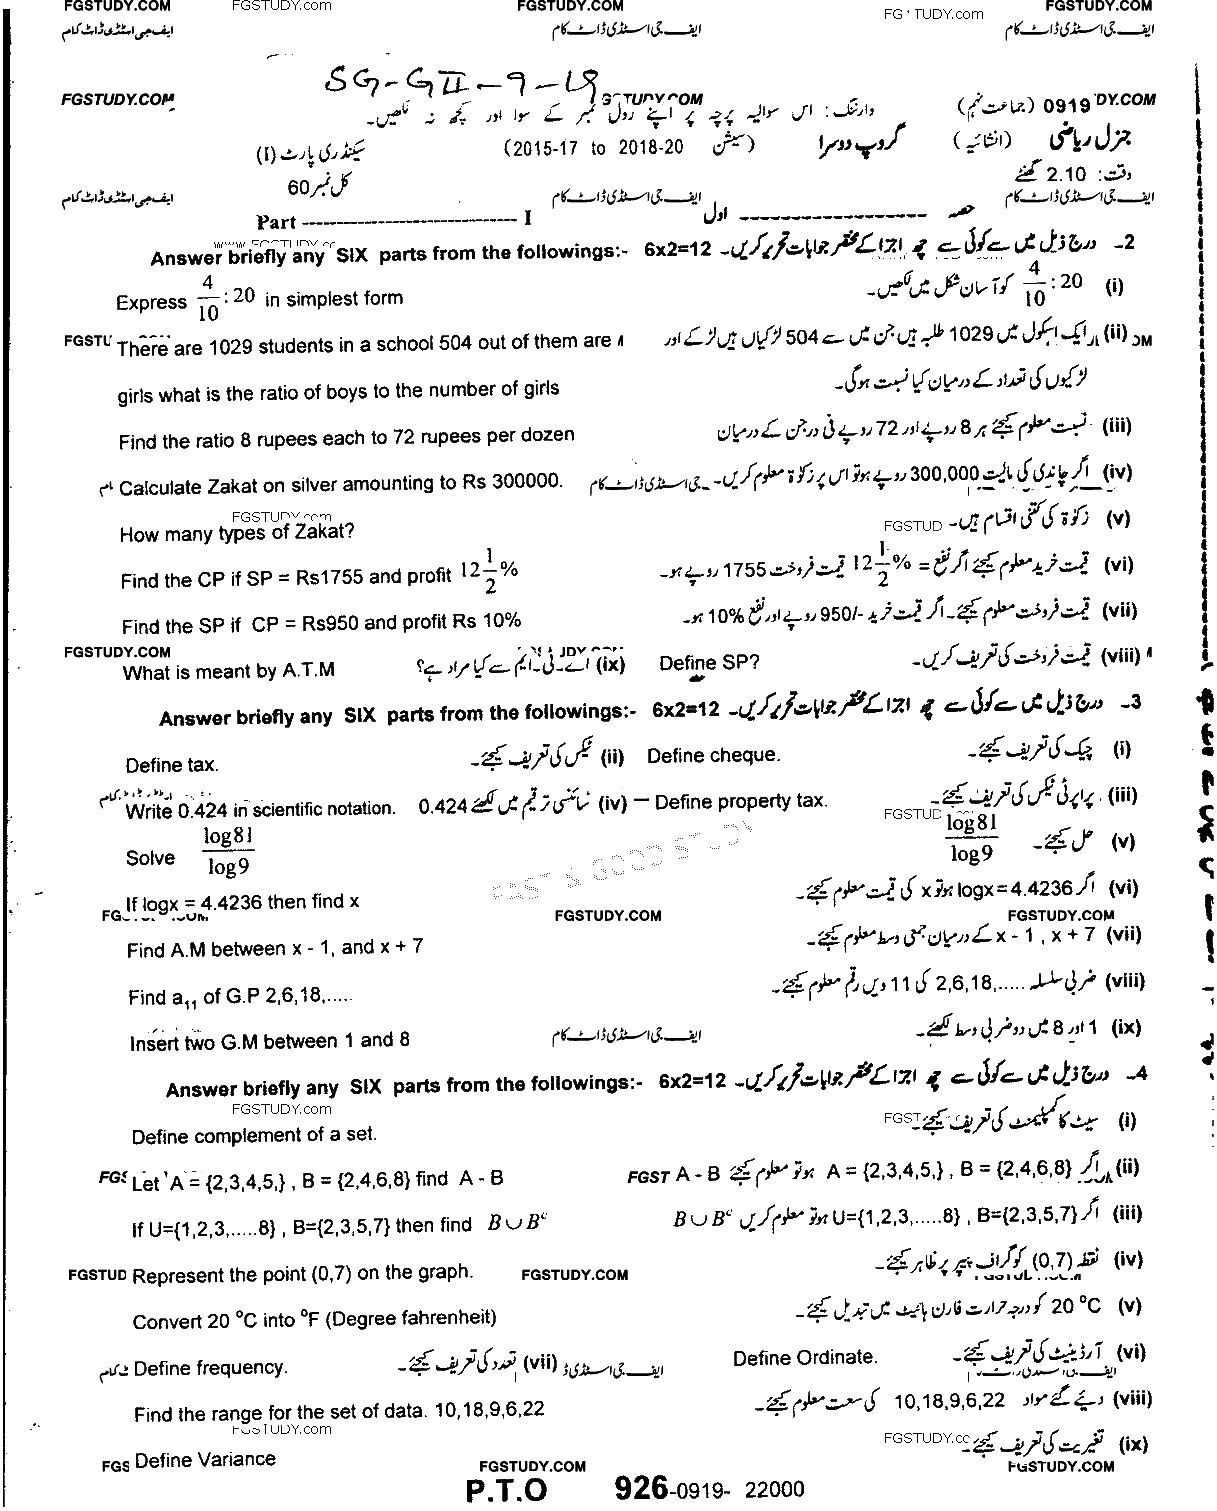 FGSTUDY.COM FGSTUDY.com FGSTUDY.COM FG TUDY.com FGSTUDY.COM
ایف جی اسٹڈی ڈاٹ کام ایف جی اسٹڈی ڈاٹ کام ایف جی اسٹڈی ڈاٹ کام
SG-GII-9-19
FGSTUDY.COM وارننگ: اس سوالیہ پرچہ پر اپنے رول نمبر کے سوا اور کچھ نہ لکھیں۔ 0919 (جماعت نہم) DY.COM
جنرل ریاضی (انشائیہ) گروپ دوسرا (سیشن 2015-17 to 2018-20) سیکنڈری پارٹ (I)
وقت: 2.10 گھنٹے کل نمبر 60
ایف جی اسٹڈی ڈاٹ کام ایف جی اسٹڈی ڈاٹ کام ایف جی اسٹڈی ڈاٹ کام
Part ------------------------------ I حصہ ------------------ اول
Answer briefly any SIX parts from the followings:- 6x2=12 2- درج ذیل میں سے کوئی سے چھ اجزا کے مختصر جوابات تحریر کریں۔
Express 4/10 : 20 in simplest form (i) 4/10 : 20 کو آسان شکل میں لکھیں۔
FGSTU There are 1029 students in a school 504 out of them are (ii) ایک اسکول میں 1029 طلبہ ہیں جن میں سے 504 لڑکیاں ہیں لڑکے اور
girls what is the ratio of boys to the number of girls لڑکیوں کی تعداد کے درمیان کیا نسبت ہوگی۔
Find the ratio 8 rupees each to 72 rupees per dozen (iii) نسبت معلوم کیجئے ہر 8 روپے اور 72 روپے فی درجن کے درمیان
Calculate Zakat on silver amounting to Rs 300000. (iv) اگر چاندی کی مالیت 300,000 روپے ہو تو اس پر زکوٰۃ معلوم کریں۔ جی اسٹڈی ڈاٹ کام
FGSTUDY.com
How many types of Zakat? (v) زکوٰۃ کی کتنی اقسام ہیں۔ FGSTUD
Find the CP if SP = Rs1755 and profit 12 1/2 % (vi) قیمت خرید معلوم کیجئے اگر نفع = 12 1/2 % قیمت فروخت 1755 روپے ہو۔
Find the SP if CP = Rs950 and profit Rs 10% (vii) قیمت فروخت معلوم کیجئے۔ اگر قیمت خرید 950/- روپے اور نفع 10% ہو۔
FGSTUDY.COM
What is meant by A.T.M (ix) اے۔ٹی۔ایم سے کیا مراد ہے؟ Define SP? (viii) قیمت فروخت کی تعریف کریں۔
Answer briefly any SIX parts from the followings:- 6x2=12 3- درج ذیل میں سے کوئی سے چھ اجزا کے مختصر جوابات تحریر کریں۔
Define tax. (ii) ٹیکس کی تعریف کیجئے۔ Define cheque. (i) چیک کی تعریف کیجئے۔
Write 0.424 in scientific notation. (iv) 0.424 سائنسی ترقیم میں لکھئے Define property tax. (iii) پراپرٹی ٹیکس کی تعریف کیجئے۔
FGSTUD
Solve log81/log9 (v) حل کیجئے۔ log81/log9
FAST & GOOD STUDY
If logx = 4.4236 then find x (vi) اگر logx=4.4236 ہو تو x کی قیمت معلوم کیجئے۔
FGSTUDY.COM FGSTUDY.COM
Find A.M between x - 1, and x + 7 (vii) x - 1 , x + 7 کے درمیان جمعی وسط معلوم کیجئے۔
Find a11 of G.P 2,6,18,..... (viii) ضربی سلسلہ 2,6,18,..... کی 11 ویں رقم معلوم کیجئے۔
Insert two G.M between 1 and 8 ایف جی اسٹڈی ڈاٹ کام (ix) 1 اور 8 میں دو ضربی وسط لکھئے۔
Answer briefly any SIX parts from the followings:- 6x2=12 4- درج ذیل میں سے کوئی سے چھ اجزا کے مختصر جوابات تحریر کریں۔
FGSTUDY.com
Define complement of a set. (i) سیٹ کا کمپلیمنٹ کی تعریف کیجئے۔ FGST
FGS Let A = {2,3,4,5,} , B = {2,4,6,8} find A - B FGST (ii) اگر A = {2,3,4,5,} , B = {2,4,6,8} ہو تو معلوم کیجئے A - B
If U={1,2,3,.....8} , B={2,3,5,7} then find B∪Bᶜ (iii) اگر U={1,2,3,.....8} , B={2,3,5,7} ہو تو معلوم کریں B∪Bᶜ
FGSTUD Represent the point (0,7) on the graph. FGSTUDY.COM (iv) نقطہ (0,7) کو گراف پیپر پر ظاہر کیجئے۔
Convert 20 °C into °F (Degree fahrenheit) (v) 20 °C کو درجہ حرارت فارن ہائیٹ میں تبدیل کیجئے۔
Define frequency. (vii) تعدد کی تعریف کیجئے۔ Define Ordinate. (vi) آرڈینیٹ کی تعریف کیجئے۔
Find the range for the set of data. 10,18,9,6,22 (viii) دیئے گئے مواد 10,18,9,6,22 کی سعت معلوم کیجئے۔
FGSTUDY.com
FGS Define Variance (ix) تغیریت کی تعریف کیجئے۔ FGSTUDY.co
FGSTUDY.COM FGSTUDY.COM
P.T.O 926-0919- 22000